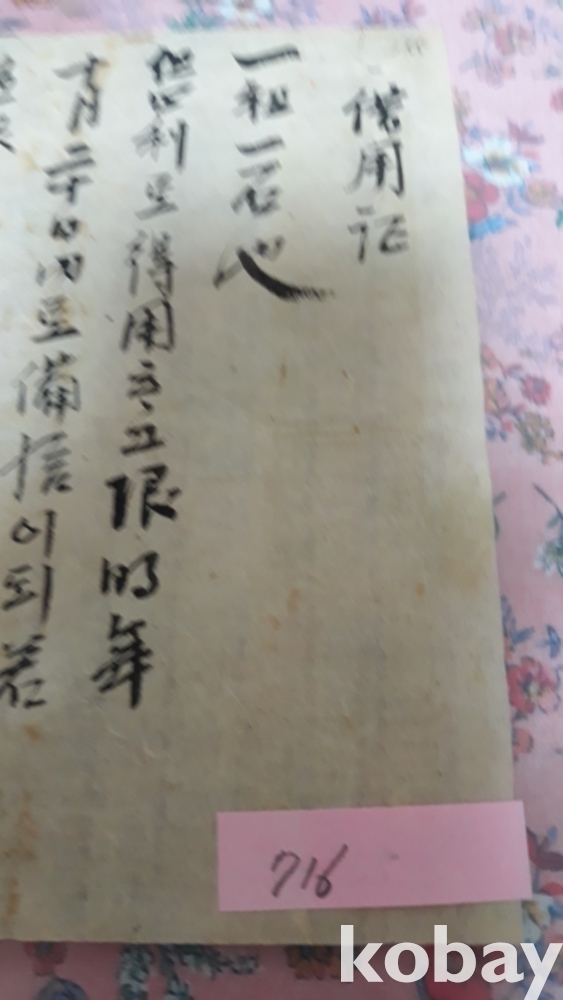 借用証
一租一石也
但以利足得用하고限明年
十月二十日內로備信이되若
716
kobay